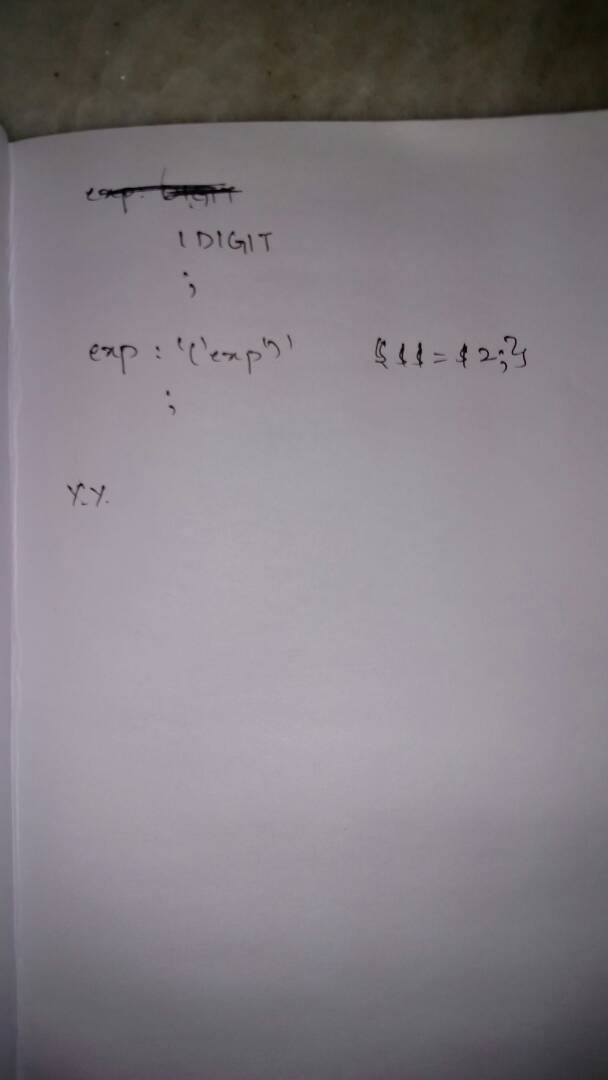 exp: DIGIT
| DIGIT
;
exp : '('exp')' {$$ = $2;}
;
%%